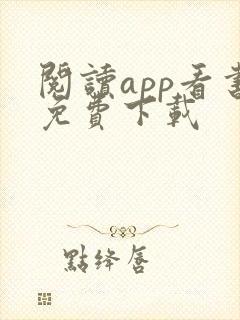 閱讀app看書
免費下載
點絳唇